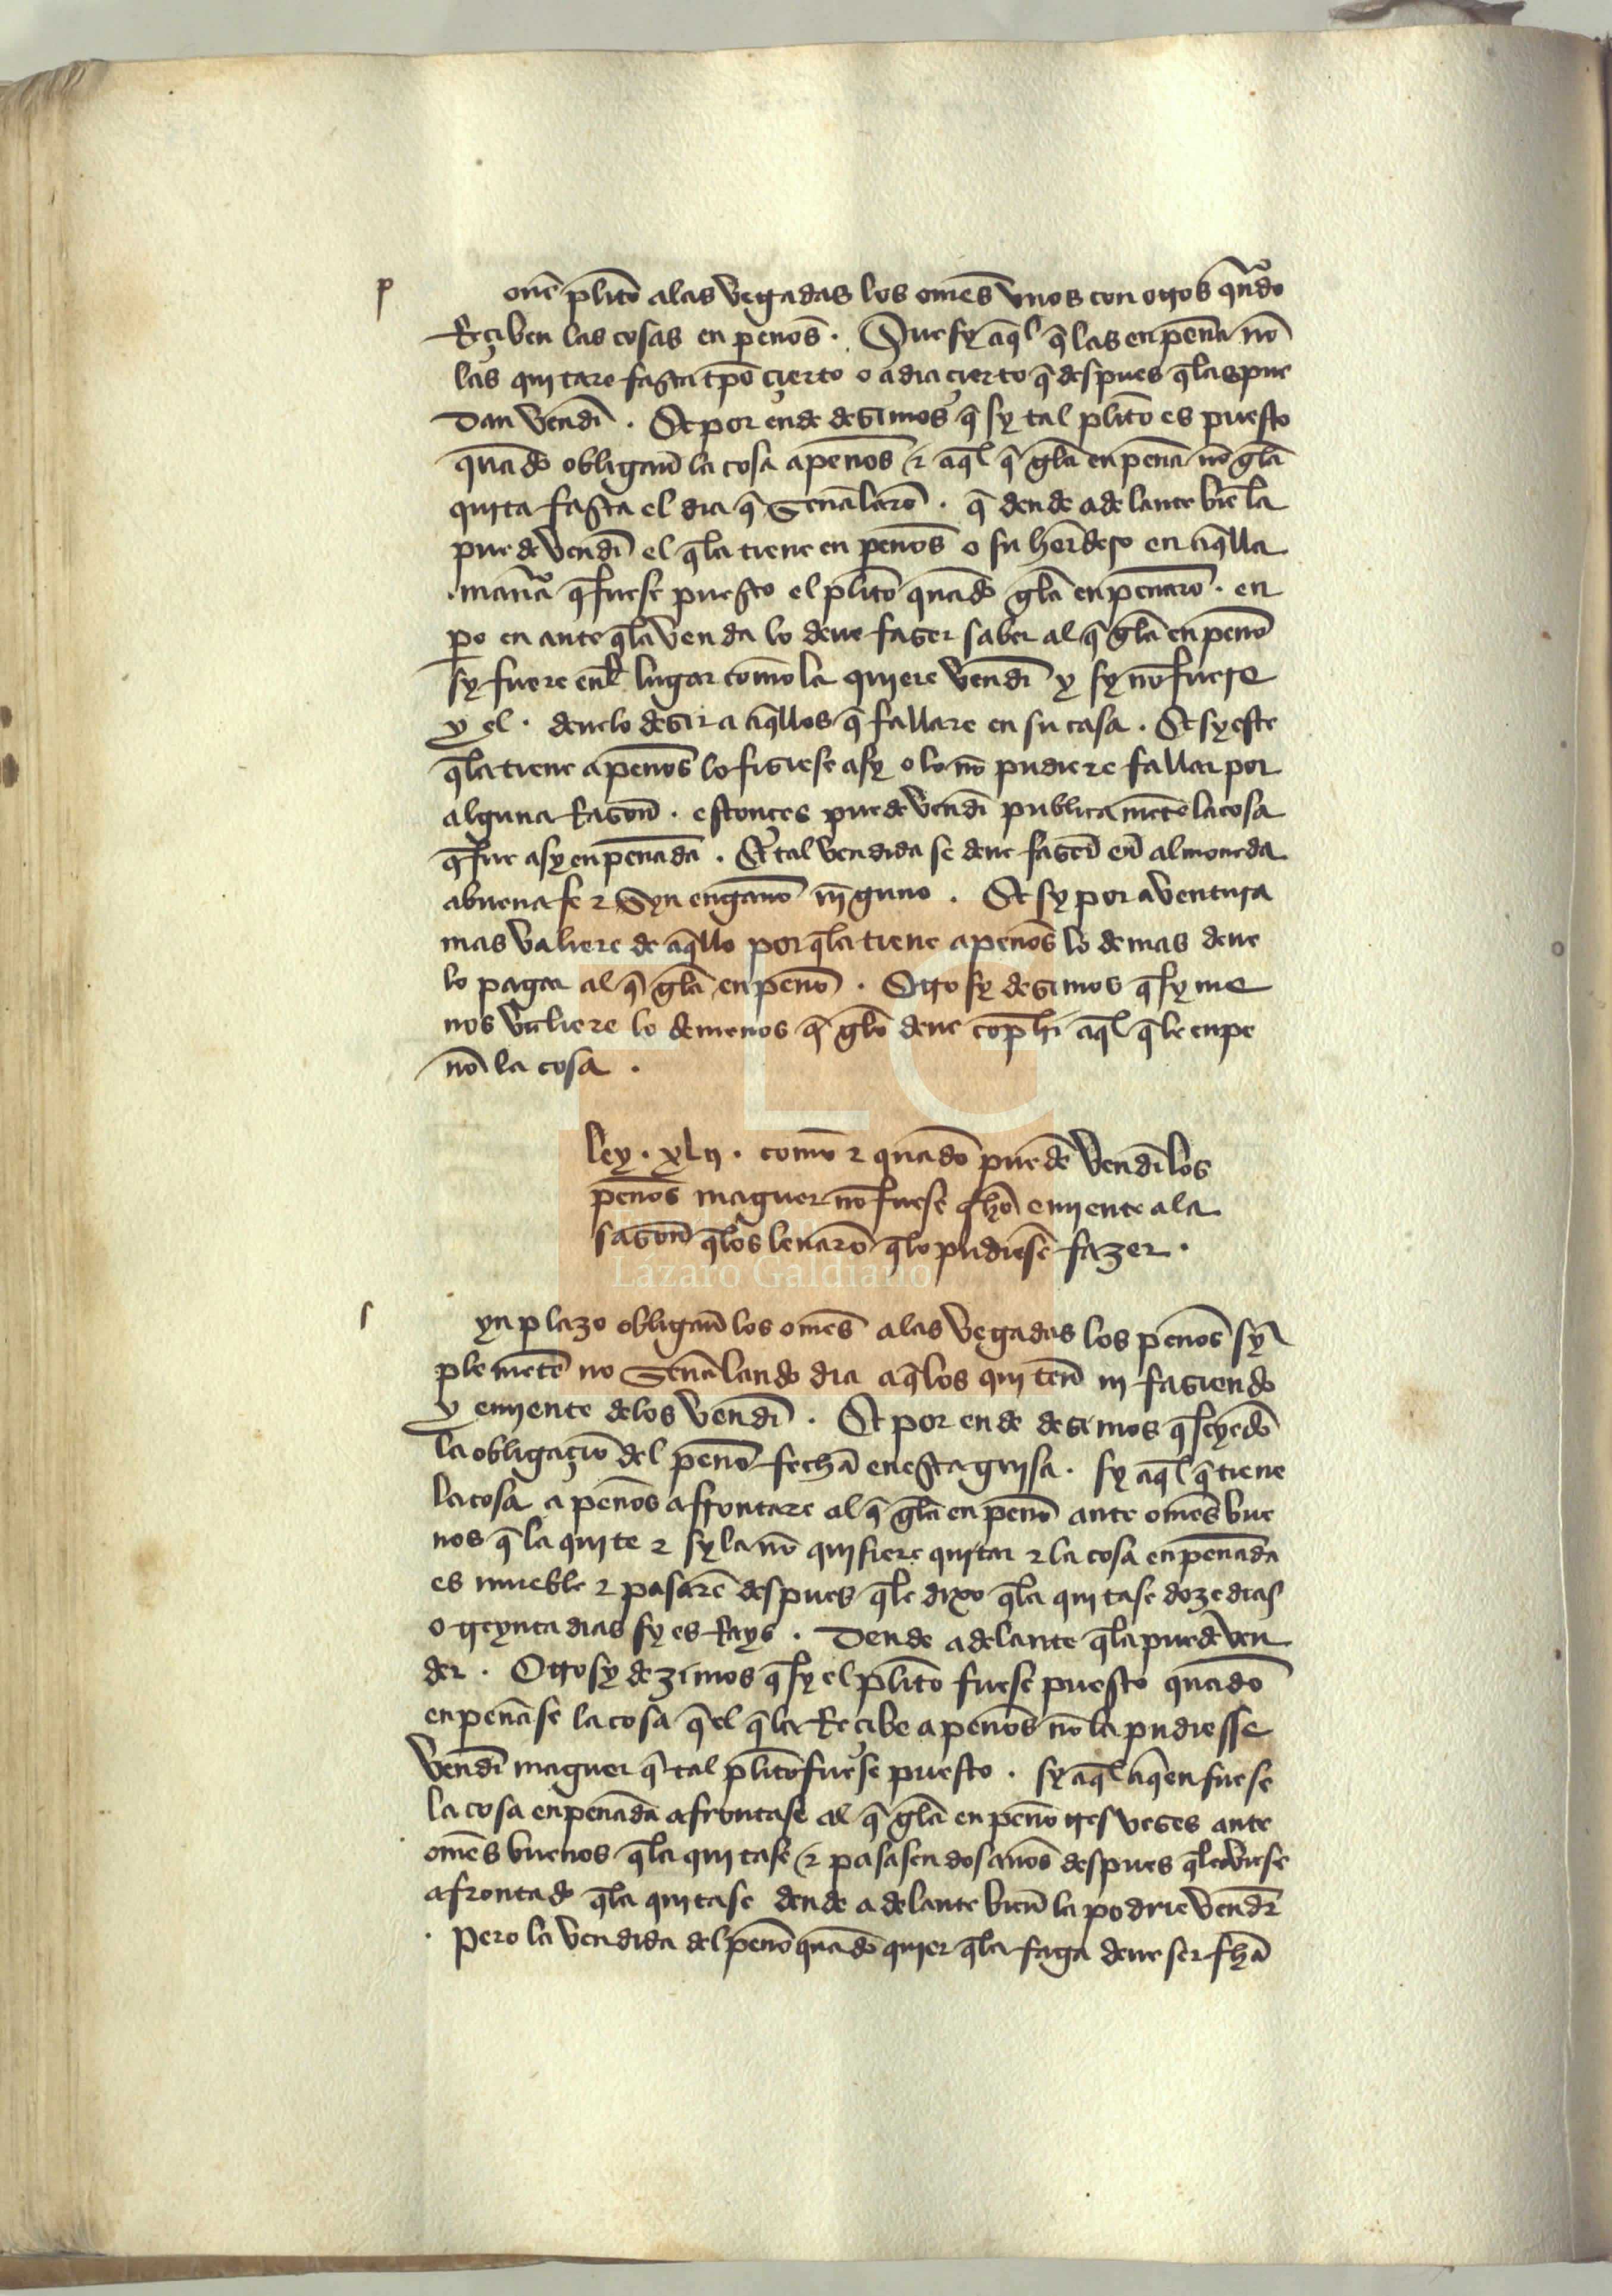 p
onē plito alas vegadas los omēs vnos con otros qn̄do
Reçiben las cosas en penōs . Que sy aq̄l q̄ las enpena nō
las quitare fasta tp̄o çierto o a dia çierto q̄ despues q̄ las pue
dan vendī . Et por ende desimos q̄ sy tal plito es puesto
quādo obligarō la cosa apenōs & aq̄l q̄ gla enpena nō gla
quita fasta el dia q̄ senalarō . q̄ dende adelante biē la
puede vendī el q̄ la tiene en penōs o su herdero en aq̄lla
manā q̄ fuese puesto el plito quādo gla enpenarō . en
po en ante q̄ la venda lo deue faser saber al q̄ gla enpenō
sy fuere enl lugar comō la quiere vendī y sy nō fuere
y el . deuelo desir a aq̄llos q̄ fallare en su casa . Et sy este
q̄ la tiene apenōs lo fisiese asy o lo nō pudiere fallar por
alguna Rasō . estonçes puede vendī publica mēte la cosa
q̄ fue asy enpenāda . Et tal vendida se deue fasē en almoneda
abuena fe & Syn engano ni guno . Et sy por aventura
mas valiere de aq̄llo por q̄ la tiene apenōs lo demas deue
lo pagar al q̄ gla enpenō . Otro sy desimos q̄ sy me
nos valiere lo demenos q̄ glo deue conplī aq̄l q̄ le enpe
nō la cosa .
ley . xlij . comō & quādo puedē vendī los
penōs maguer nō fuese fho emiente ala
sasō q̄ los leuarō q̄ lo pudiesē fazer .
s
yn plazo obligā los omēs alas vegadas los penōs sȳ
ple mētē no senalando dia aq̄ los quitē ni fasiendo
y emiente delos vendī . Et por ende desimos q̄ seyēdo
la obligaçiō del penō fecha en esta guisa . sy aq̄l q̄ tiene
la cosa apenōs afrontare al q̄ gla enpenō ante omēs bue
nos q̄ la quite & sy la nō quisiere quitar & la cosa enpenāda
es mueble & pasarē despues q̄ le dixo q̄ la quitase doze dias
o treynta dias sy es Rays . dende adelante q̄ la puede ven
der . Otrosy dezimos q̄ sy el plito fuese puesto quādo
enpenāse la cosa q̄ el q̄ la Reçibe apenōs nō la pudiesse
vendī maguer q̄ tal plito fuese puesto . sy aq̄l aq̄en fuese
la cosa enpenāda afrontase al q̄ gla enpenō tres veses ante
omēs buenos q̄ la quitase & pasasen dos anōs despues q̄ le oviese
afrontado q̄ la quitase dende adelante biē la podrie vendr
. pero la vendida del penō quādo quier q̄ la faga deue ser fha
Lázaro Galdiano